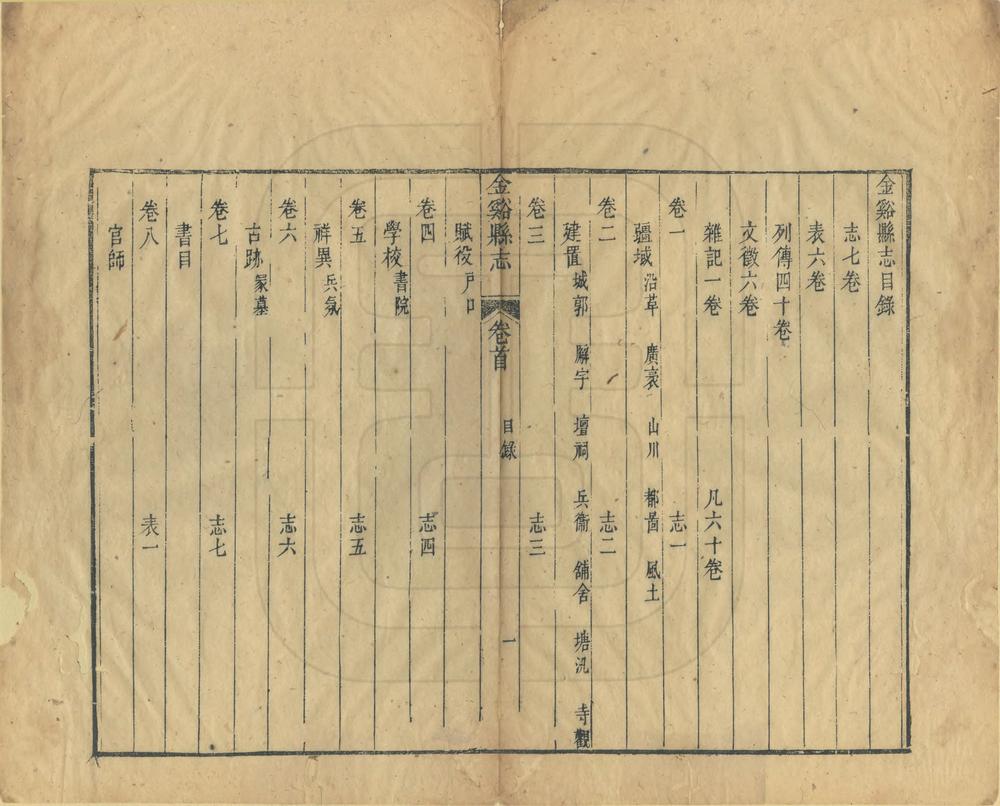 金谿縣志目錄
志七卷
表六卷
列傳四十卷
文徵六卷
雜記一卷 凡六十卷
卷一 志一
疆域 沿革 廣袤 山川 都啚 風土
卷二 志二
建置 城郭 廨宇 壇祠 兵衞 舖舍 塘汛 寺觀
卷三 志三
賦役 戸口
金谿縣志 卷首 目録 一
卷四 志四
學校 書院
卷五 志五
祥異 兵氛
卷六 志六
古跡 冢墓
卷七 志七
書目
卷八 表一
官師